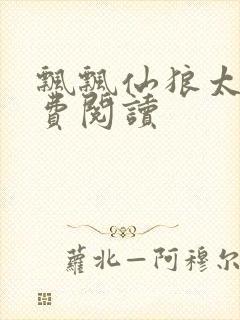 飄飄仙狼太
費閱讀
蘿北—阿穆尔